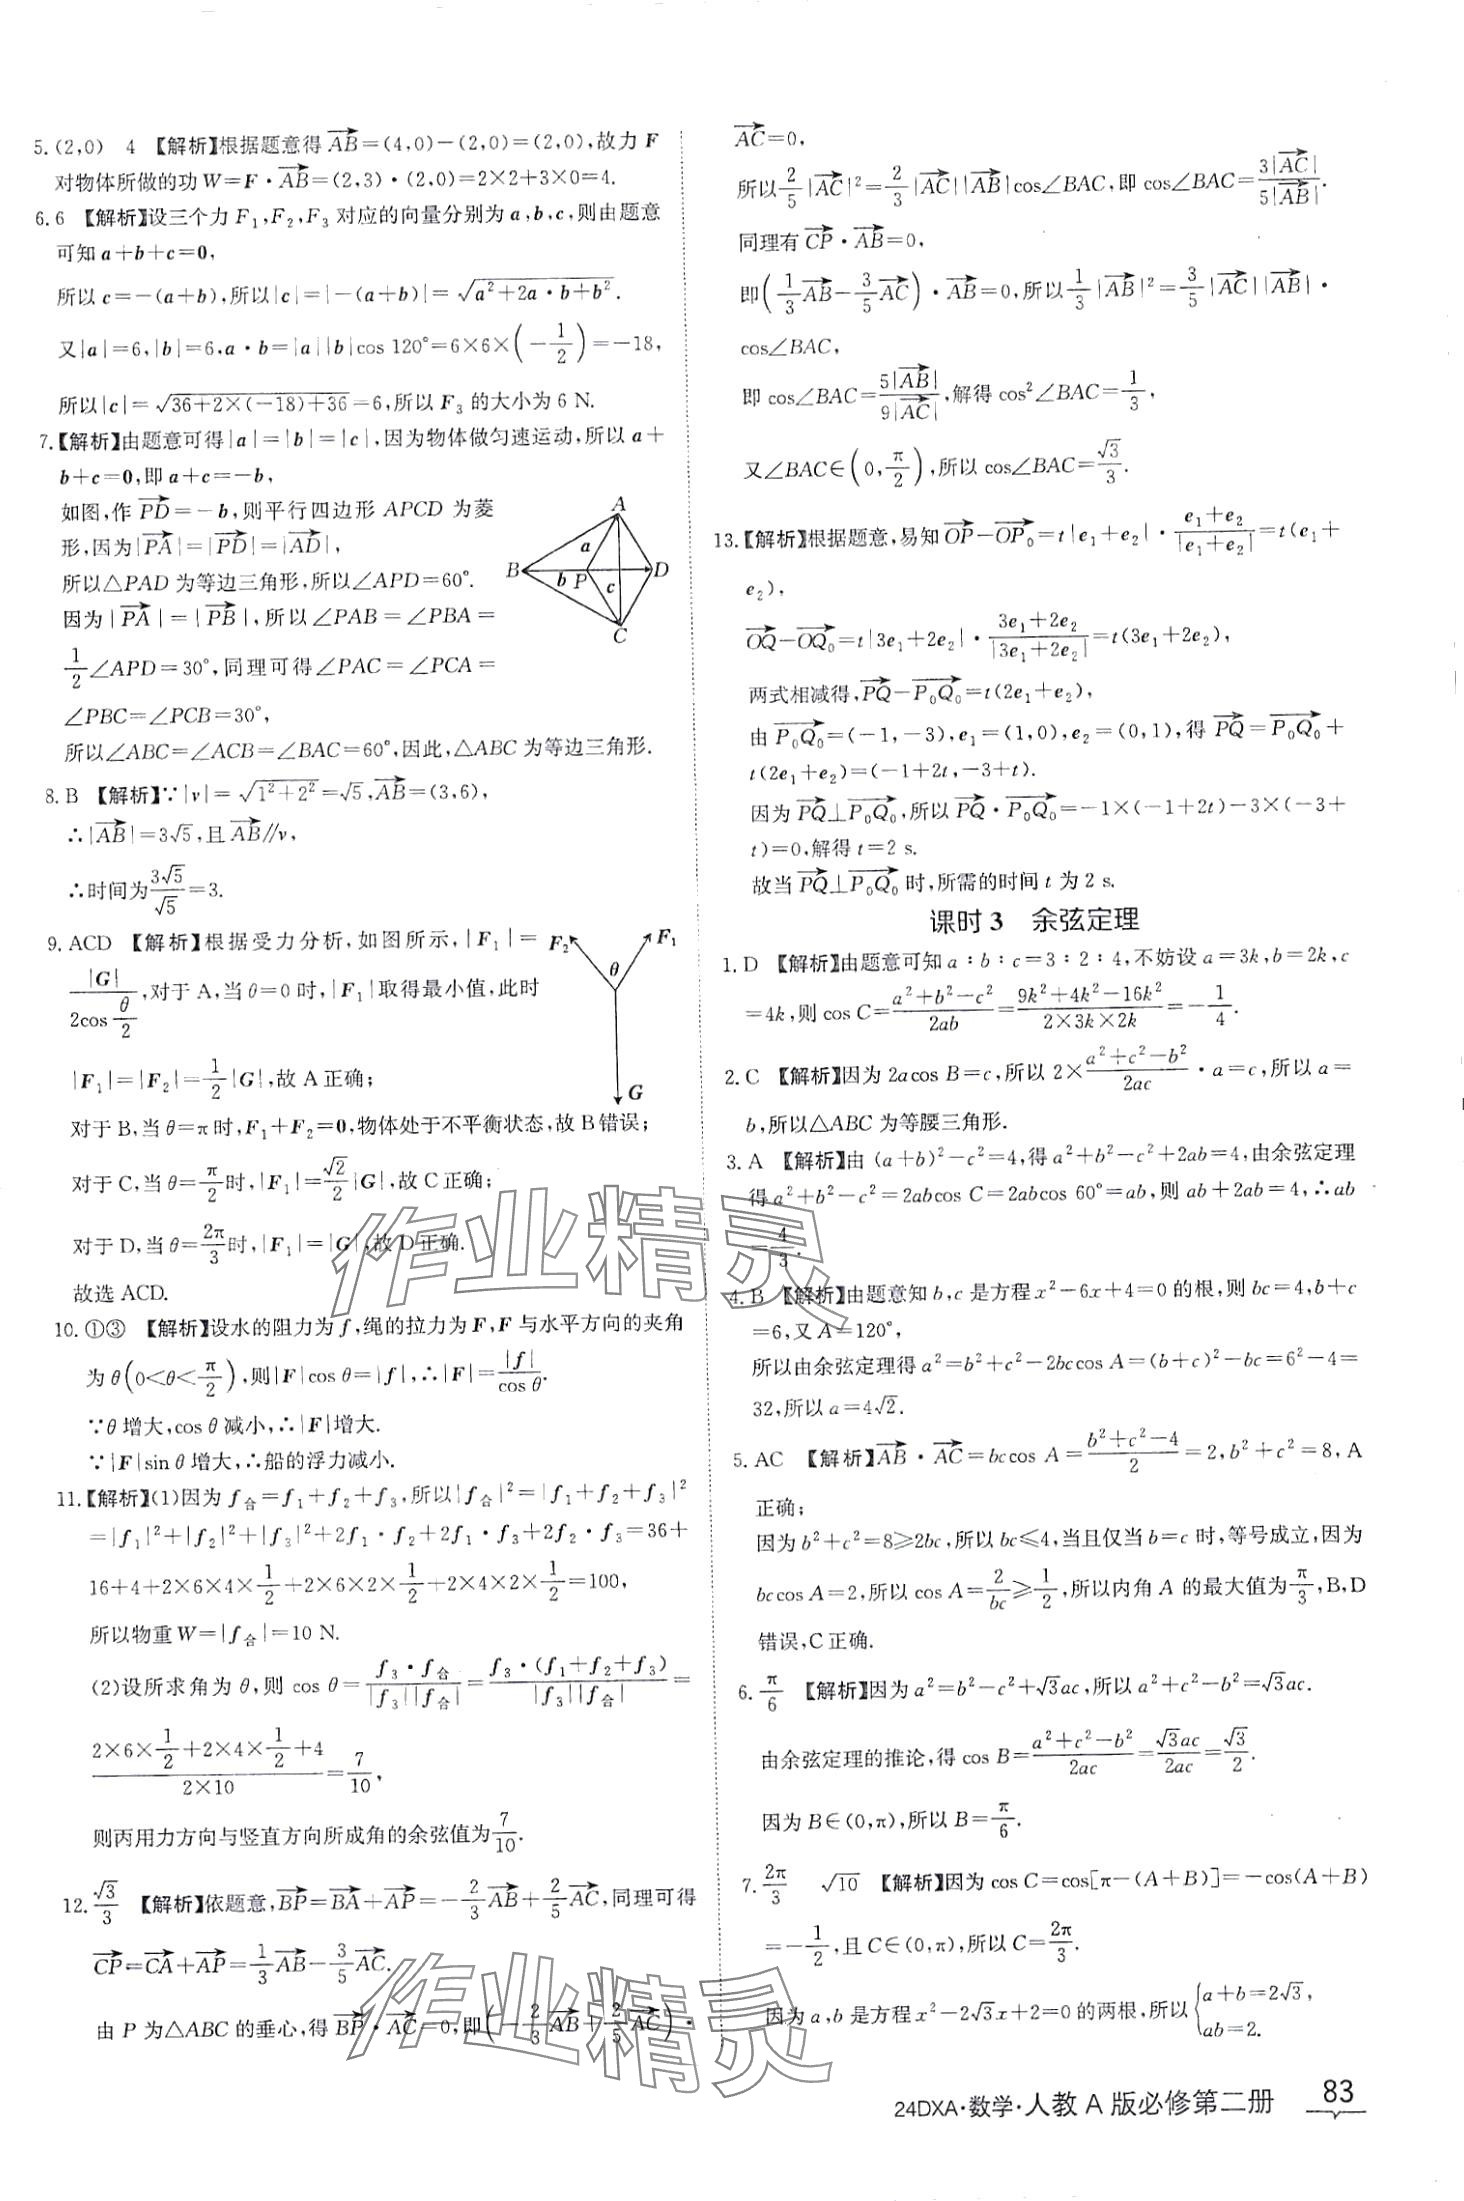 5.(2,0) 4 【解析】根据题意得AB→=(4,0)-(2,0)=(2,0),故力 F
对物体所做的功W=F·AB→=(2,3)·(2,0)=2×2+3×0=4.
6.6 【解析】设三个力 F₁,F₂,F₃ 对应的向量分别为 a,b,c,则由题意
可知 a+b+c=0,
所以 c=-(a+b),所以|c|=|-(a+b)|=√(a²+2a·b+b²).
又|a|=6,|b|=6,a·b=|a||b|cos 120°=6×6×(-1/2)=-18,
所以|c|=√(36+2×(-18)+36)=6,所以 F₃ 的大小为 6 N.
7.【解析】由题意可得|a|=|b|=|c|,因为物体做匀速运动,所以 a+
b+c=0,即 a+c=-b,
如图,作 PD→=-b,则平行四边形 APCD 为菱
形,因为|PA→|=|PD→|=|AD→|,
所以△PAD 为等边三角形,所以∠APD=60°.
因为|PA→|=|PB→|,所以∠PAB=∠PBA=
1/2∠APD=30°,同理可得∠PAC=∠PCA=
∠PBC=∠PCB=30°,
所以∠ABC=∠ACB=∠BAC=60°,因此,△ABC 为等边三角形.
A
B
C
D
P
a
b
c
8.B 【解析】∵|v|=√(1²+2²)=√5,AB→=(3,6),
∴|AB→|=3√5,且AB→∥v,
∴时间为3√5/√5=3.
9.ACD 【解析】根据受力分析,如图所示,|F₁|=
|G|/(2cos θ/2),对于 A,当 θ=0 时,|F₁|取得最小值,此时
|F₁|=|F₂|=1/2|G|,故 A 正确;
F₂
F₁
θ
G
对于 B,当 θ=π 时,F₁+F₂=0,物体处于不平衡状态,故 B 错误;
对于 C,当 θ=π/2时,|F₁|=√2/2|G|,故 C 正确;
对于 D,当 θ=2π/3时,|F₁|=|G|,故 D 正确.
故选 ACD.
10.①③ 【解析】设水的阻力为 f,绳的拉力为 F,F 与水平方向的夹角
为 θ(0<θ<π/2),则|F|cos θ=|f|,∴|F|=|f|/cos θ.
∵θ 增大,cos θ 减小,∴|F|增大.
∵|F|sin θ 增大,∴船的浮力减小.
11.【解析】(1)因为 f合=f₁+f₂+f₃,所以|f合|²=|f₁+f₂+f₃|²
=|f₁|²+|f₂|²+|f₃|²+2f₁·f₂+2f₁·f₃+2f₂·f₃=36+
16+4+2×6×4×1/2+2×6×2×1/2+2×4×2×1/2=100,
所以物重W=|f合|=10 N.
(2)设所求角为 θ,则 cos θ=f₃·f合/(|f₃||f合|)=f₃·(f₁+f₂+f₃)/(|f₃||f合|)=
(2×6×1/2+2×4×1/2+4)/(2×10)=7/10,
则丙用力方向与竖直方向所成角的余弦值为7/10.
12.√3/3 【解析】依题意,BP→=BA→+AP→=-2/3AB→+2/5AC→,同理可得
CP→=CA→+AP→=1/3AB→-3/5AC→.
由 P 为△ABC 的垂心,得BP→·AC→=0,即(-2/3AB→+2/5AC→)·
AC→=0,
所以2/5|AC→|²=2/3|AC→||AB→|cos∠BAC,即 cos∠BAC=3|AC→|/5|AB→|.
同理有CP→·AB→=0,
即(1/3AB→-3/5AC→)·AB→=0,所以1/3|AB→|²=3/5|AC→||AB→|·
cos∠BAC,
即 cos∠BAC=5|AB→|/9|AC→|,解得 cos²∠BAC=1/3,
又∠BAC∈(0,π/2),所以 cos∠BAC=√3/3.
13.【解析】根据题意,易知OP→-OP₀→=t|e₁+e₂|·(e₁+e₂)/|e₁+e₂|=t(e₁+
e₂),
OQ→-OQ₀→=t|3e₁+2e₂|·(3e₁+2e₂)/|3e₁+2e₂|=t(3e₁+2e₂),
两式相减得,PQ→-P₀Q₀→=t(2e₁+e₂),
由P₀Q₀→=(-1,-3),e₁=(1,0),e₂=(0,1),得PQ→=P₀Q₀→+
t(2e₁+e₂)=(-1+2t,-3+t).
因为PQ→⊥P₀Q₀→,所以PQ→·P₀Q₀→=-1×(-1+2t)-3×(-3+
t)=0,解得 t=2 s.
故当PQ→⊥P₀Q₀→时,所需的时间 t 为 2 s.
课时 3 余弦定理
1.D 【解析】由题意可知 a∶b∶c=3∶2∶4,不妨设 a=3k,b=2k,c
=4k,则 cos C=(a²+b²-c²)/2ab=(9k²+4k²-16k²)/(2×3k×2k)=-1/4.
2.C 【解析】因为 2acos B=c,所以 2×(a²+c²-b²)/2ac·a=c,所以 a=
b,所以△ABC 为等腰三角形.
3.A 【解析】由 (a+b)²-c²=4,得 a²+b²-c²+2ab=4,由余弦定理
得 a²+b²-c²=2abcos C=2abcos 60°=ab,则 ab+2ab=4,∴ab
=4/3.
4.B 【解析】由题意知 b,c 是方程 x²-6x+4=0 的根,则 bc=4,b+c
=6,又 A=120°,
所以由余弦定理得 a²=b²+c²-2bccos A=(b+c)²-bc=6²-4=
32,所以 a=4√2.
5.AC 【解析】AB→·AC→=bccos A=(b²+c²-4)/2=2,b²+c²=8,A
正确;
因为 b²+c²=8≥2bc,所以 bc≤4,当且仅当 b=c 时,等号成立,因为
bccos A=2,所以 cos A=2/bc≥1/2,所以内角 A 的最大值为π/3,B,D
错误,C 正确.
6.π/6 【解析】因为 a²=b²-c²+√3ac,所以 a²+c²-b²=√3ac.
由余弦定理的推论,得 cos B=(a²+c²-b²)/2ac=√3ac/2ac=√3/2.
因为 B∈(0,π),所以 B=π/6.
7.2π/3 √10 【解析】因为 cos C=cos[π-(A+B)]=-cos(A+B)
=-1/2,且 C∈(0,π),所以 C=2π/3.
因为 a,b 是方程 x²-2√3x+2=0 的两根,所以{a+b=2√3,
ab=2.
作业精灵
作业精灵
24DXA·数学·人教 A 版必修第二册 83